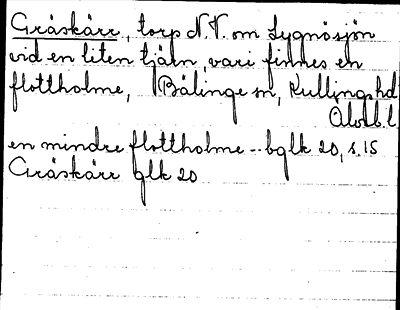 Gråskärr, torp N.V. om Lygnösjön
vid en liten tjärn, vari finnes en
flottholme, Bälinge sn, Kullings hd
Älvsb. l.
en mindre flottholme -- bglk 20, s. 15
Gråskärr glk 20